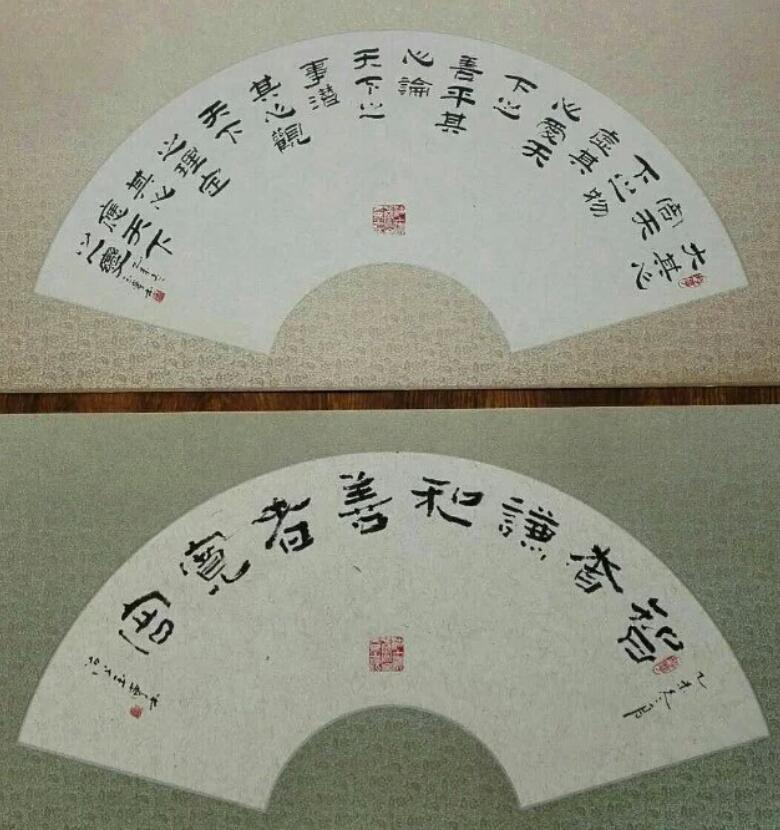 大其心
容天
下之
物
虛其
心愛天
下之
善平其
心論
天下之
事潛
其心觀
天下
之理定
其心
應天下
之變
智者謙和善者寬容
乙未春月